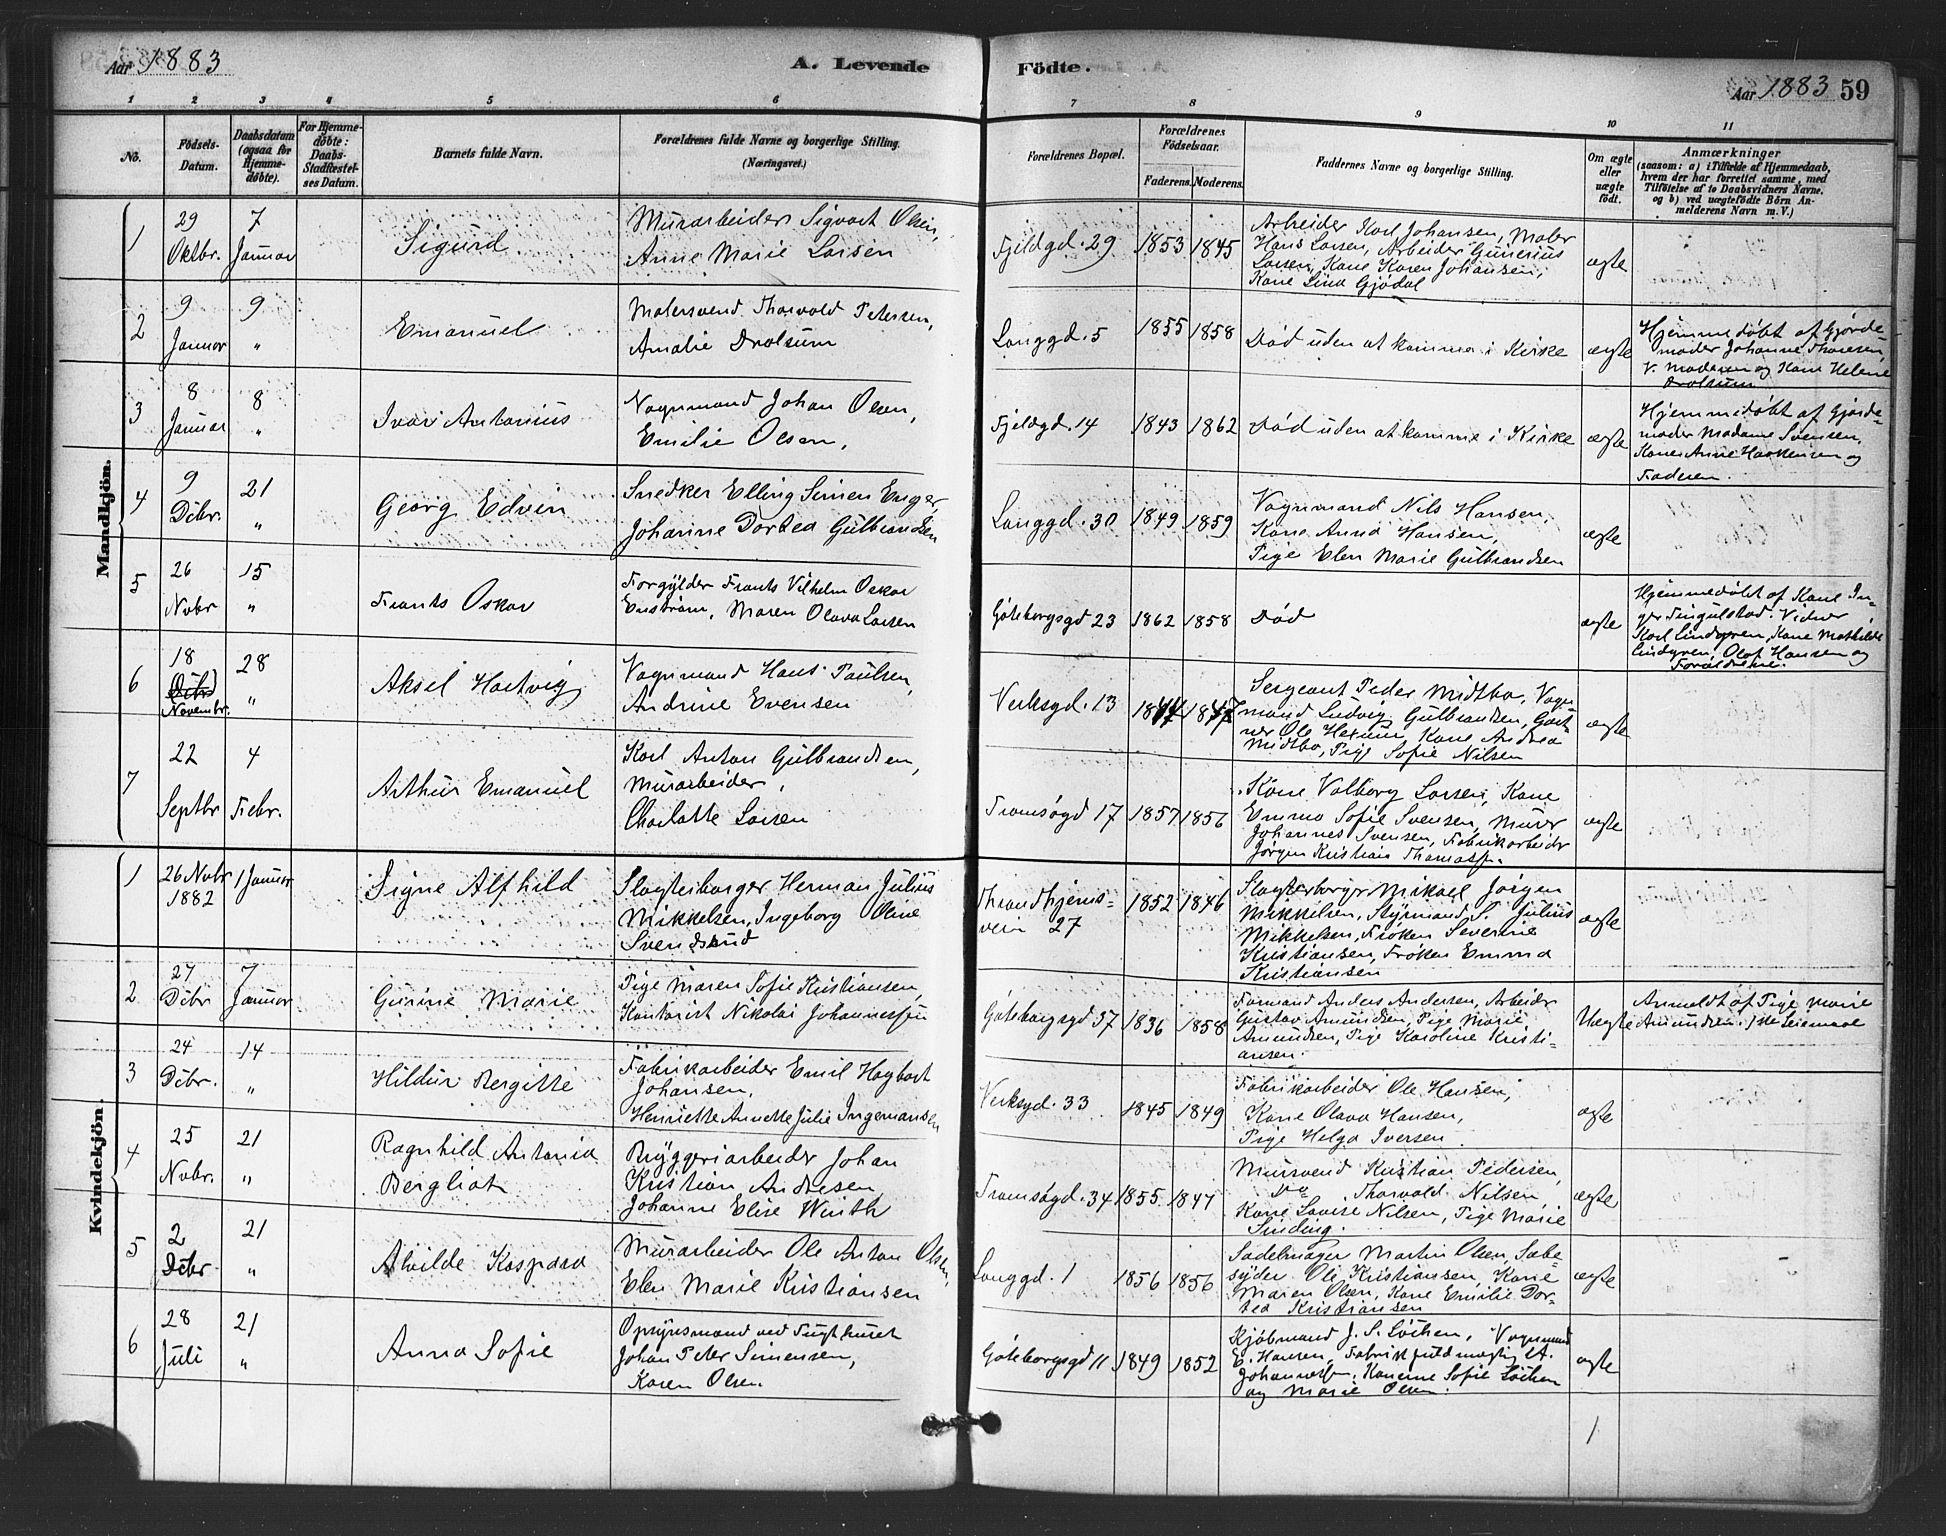 Aar 1883
A. Levende Födte.
Aar 1883 59
1 2 3 4 5 6 7 8 9 10 11
No.
Födsels-
Datum.
Daabsdatum
(ogsaa for
Hjemme-
døbte).
For Hjemme-
døbte:
Daabs-
Stadfæstel-
ses Datum.
Barnets fulde Navn.
Forældrenes fulde Navne og borgerlige Stilling.
(Næringsvei.)
Forældrenes Bopæl.
Forældrenes
Födselsaar.
Faderens. Moderens.
Faddernes Navne og borgerlige Stilling.
Om ægte
eller
uægte
født.
Anmærkninger
(saasom: a) i Tilfælde af Hjemmedaab,
hvem der har forrettet samme, med
Tilföielse af to Daabsvidners Navne,
og b) ved uægtefödte Börn An-
melderens Navn m. V.)
Mandkjön.
1
29
Oktbr.
7
Januar
Sigurd
Murarbeider Sigvart Olsen,
Anne Marie Larsen
Fjeldgd. 29
1853 1845
Arbeider Karl Johansen, Maler
Hans Larsen, Arbeider Gunerius
Larsen, Kone Karen Johansen,
Kone Lina Gjødal
ægte
2
9
Januar
9
"
Emanuel
Malersvend Thorvald Petersen,
Amalie Drolsum
Langgd. 5
1855 1858
Død uden at komme i Kirke
ægte
Hjemmedøbt af Gjorde-
moder Johanne Thoresen,
V. Moderen og Kone Helene
Drolsum
3
8
Januar
8
"
Ivar Antonius
Vognmand Johan Olsen,
Emilie Olsen,
Fjeldgd. 14
1843 1862
Død uden at komme i Kirke
ægte
Hjemmedøbt af Gjorde-
moder Madame Svensen,
Kone Anne Haakensen og
Faderen.
4
9
Debr.
21
"
Georg Edvin
Snedker Elling Simen Enger,
Johanne Dortea Gulbrandsen
Langgd. 30
1849 1859
Vognmand Nils Hansen,
Kone Anna Hansen,
Pige Elen Marie Gulbrandsen
ægte
5
26
Novbr
15
"
Frants Oskar
Forgylder Frants Vilhelm Oskar
Enstrøm, Maren Olava Larsen
Göteborgsgd 23
1862 1858
Død
ægte
Hjemmedøbt af Kone In-
ger Tingulstad. Vidner
Karl Lindgren, Kone Mathilde
Lindgren, Olaf Hansen og
Forældrene.
6
18
Debr
Novembr.
28
"
Aksel Hartvig
Vognmand Hans Paulsen,
Andrine Evensen
Verksgd. 13
1844 1847
Sergeant Peder Midtbo, Vogn-
mand Ludvig Gulbrandsen, Gart-
ner Ole Hexum, Kone Andrea
Midtbo, Pige Sofie Nilsen
ægte
7
22
Septbr
4
Febr.
Arthur Emanuel
Karl Anton Gulbrandsen,
Murarbeider,
Charlotte Larsen
Tromsøgd 17
1857 1856
Kone Valborg Larsen, Kone
Emma Sofie Svensen, Murer
Johannes Svensen, Fabrikarbeider
Jørgen Kristian Thomassen
ægte
Kvindekjön.
1
26 Novbr
1882
1 Januar
Signe Alfhild
Slagterborger Herman Julius
Mikkelsen, Ingeborg Oline
Svendsrud
Throndhjems-
vein 27
1852 1846
Slagterborger Mikael Jørgen
Mikkelsen, Styrmand S. Julius
Mikkelsen, Frøken Severine
Kristiansen, Frøken Emma
Kristiansen
ægte
2
27
Debr
7
Januar
Gurine Marie
Pige Maren Sofie Kristiansen,
Kontorist Nikolai Johannessen
Göteborgsgd 37
1836 1858
Formand Anders Andersen, Arbeider
Gustav Amundsen, Pige Marie
Amundsen, Pige Karoline Kristi-
ansen.
Uægte
Anmeldt af Pige Marie
Amundsen. 1ste Leiemaal
3
24
Debr.
14
"
Hildur Bergitte
Fabrikarbeider Emil Hagbart
Johansen,
Henriette Annette Julie Ingemansen
Verksgd. 33
1845 1849
Fabrikarbeider Ole Hansen,
Kone Olava Hansen,
Pige Helga Iversen.
ægte
4
25
Novbr.
21
"
Ragnhild Antonia
Bergliot
Bryggeriarbeider Johan
Kristian Andresen
Johanne Elise Winth
Tromsøgd. 34
1855 1847
Mursvend Kristian Pedersen,
do Thorvald Nilsen,
Kone Lovise Nilsen, Pige Marie
Sinding.
ægte
5
2
Debr
21
"
Alvilde Kaspara
Murarbeider Ole Anton Olsen,
Elen Marie Kristiansen
Langgd. 1
1856 1856
Sadelmager Martin Olsen, Sæbe-
syder Ole Kristiansen, Kone
Maren Olsen, Kone Emilie Dor-
tea Kristiansen
ægte
6
28
Juli
21
"
Anna Sofie
Opsynsmand ved Tugthuset
Johan Peter Simensen,
Karen Olsen.
Göteborgsgd 11
1849 1852
Kjøbmand J. S. Löchen, Vognmand
E. Hansen, Fabrikfuldmægtig A.
Johannessen, Konerne Sofie Löchen
og Marie Olsen.
ægte
1